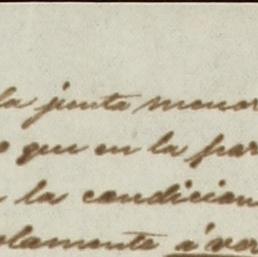 la junta menor
o que en la par
la condicion
olamente á ver